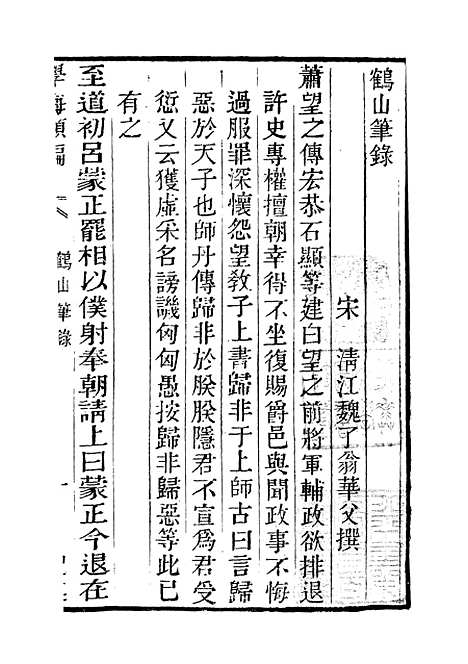 鶴山筆錄
宋　清江魏了翁華父撰
蕭望之傳宏恭石顯等建白望之前將軍輔政欲排退
許史專權擅朝幸得不坐復賜爵邑與聞政事不悔
過服罪深懷怨望敎子上書歸非于上師古曰言歸
惡於天子也師丹傳歸非於朕朕隱君不宣爲君受
愆又云獲虛采名謗譏匈匈愚按歸非歸惡等此已
有之
至道初呂蒙正罷相以僕射奉朝請上曰蒙正今退在
學海類編　鶴山筆錄　一